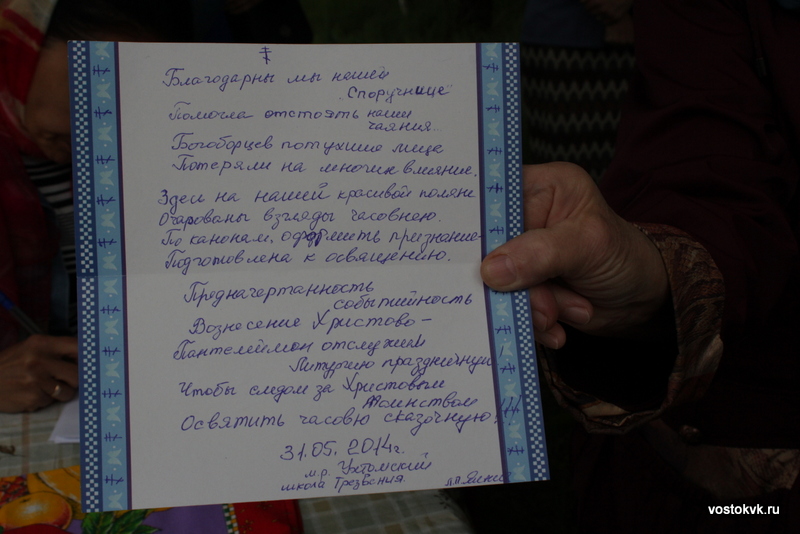 Благодарны мы нашей
„Споручнице"
Помогла отстоять наши
чаяния...
Богоборцев потухшие лица
Потеряли на многих влияние.
Здесь на нашей красивой поляне
Очарованы взгляды часовнею.
По канонам, оформить признание-
Подготовлена к освящению.
Предначертанность
событийность
Вознесение Христово –
Пантелеймон отслужит
Литургию праздничную!
Чтобы следом за Христовым
Воинством
Освятить часовю сказочную!!!
31.05.2014г.
м.р. Ухтомский
школа Трезвения
vostokvk.ru